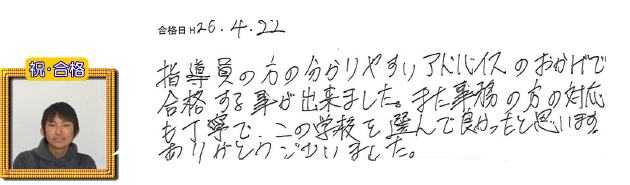 合格日 H26.4.22
祝・合格
指導員の方の分かりやすいアドバイスのおかげで
合格する事が出来ました。また事務の方の対応
も丁寧で、この学校を選んで良かったと思います
ありがとうございました。